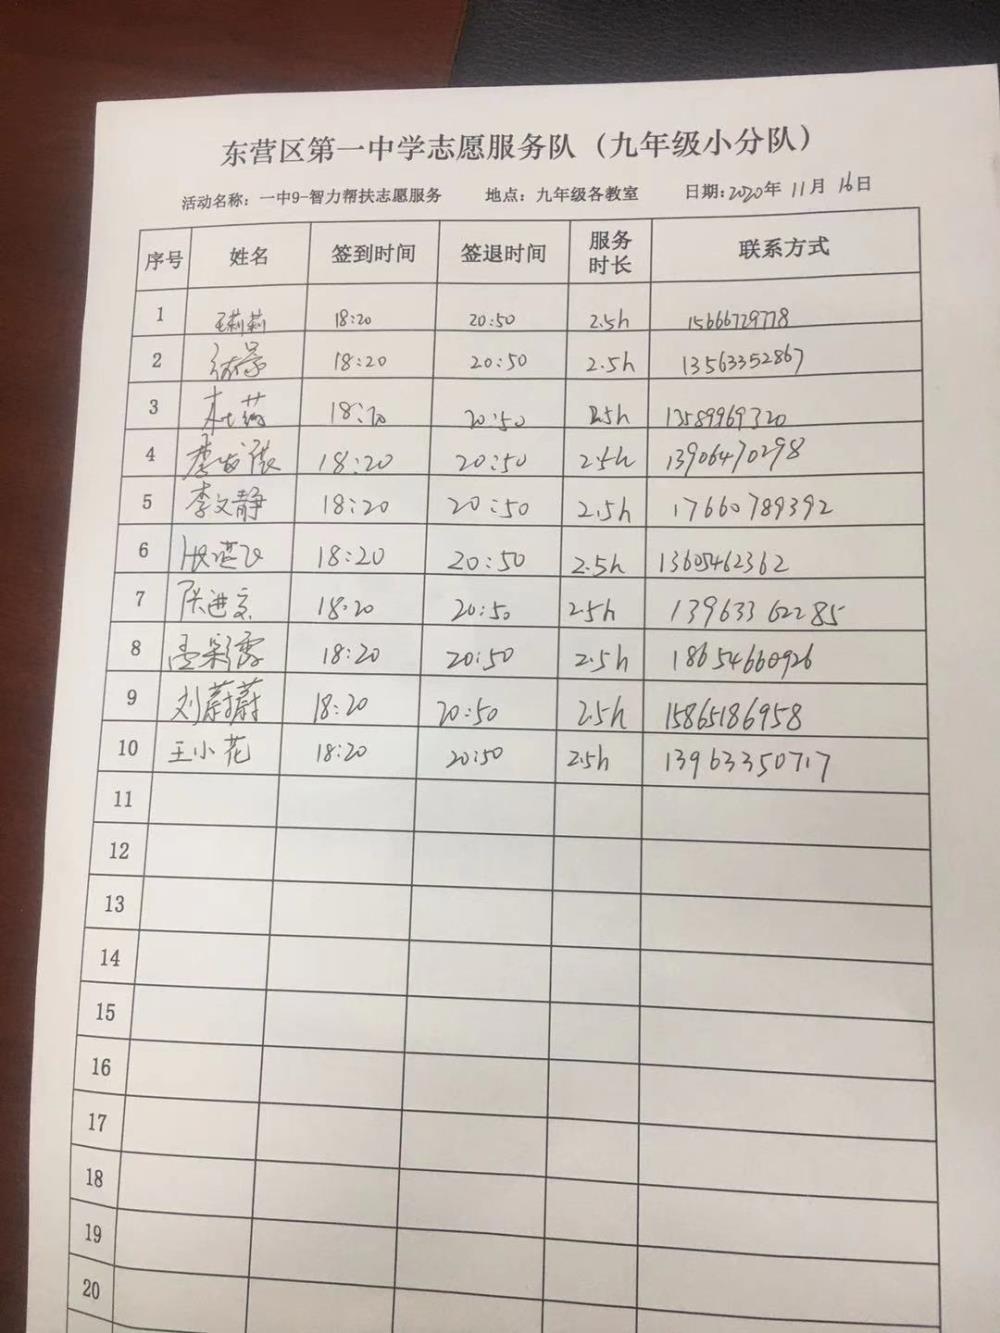 东营区第一中学志愿服务队（九年级小分队）
活动名称：一中9-智力帮扶志愿服务 地点：九年级各教室 日期：2020年 11月 16日
序号 姓名 签到时间 签退时间 服务时长 联系方式
1 王莉莉 18:20 20:50 2.5h 15666729778
2 18:20 20:50 2.5h 13563352867
3 18:20 20:50 2.5h 13589969320
4 18:20 20:50 2.5h 13906470298
5 李文静 18:20 20:50 2.5h 17660789392
6 18:20 20:50 2.5h 13605462362
7 张进京 18:20 20:50 2.5h 13963362285
8 孟彩霞 18:20 20:50 2.5h 18654660926
9 刘蔚蔚 18:20 20:50 2.5h 15865186958
10 王小花 18:20 20:50 2.5h 13963350717
11
12
13
14
15
16
17
18
19
20